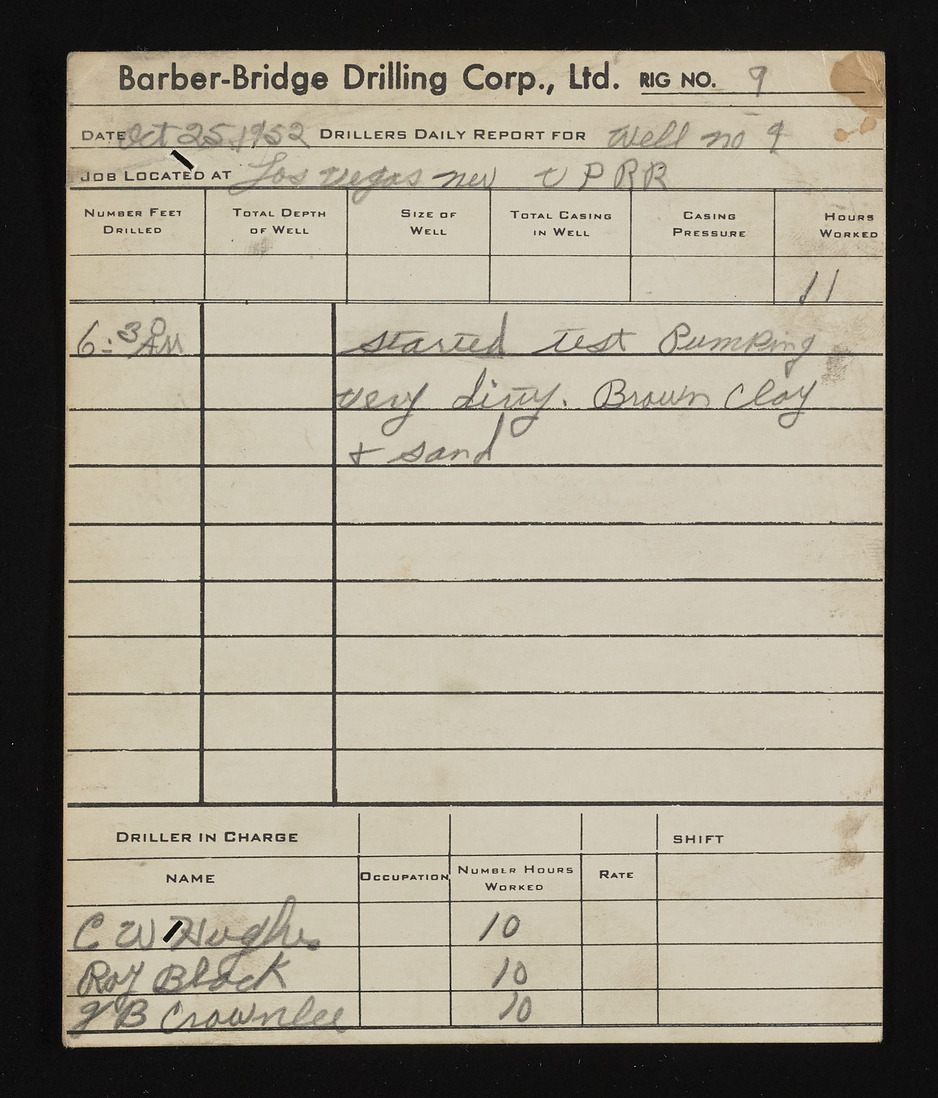 Barber-Bridge Drilling Corp., Ltd. RIG NO. 9
DATE Oct 25, 1952 DRILLERS DAILY REPORT FOR Well no 9
JOB LOCATED AT Las Vegas nev U P R R
NUMBER FEET DRILLED TOTAL DEPTH OF WELL SIZE OF WELL TOTAL CASING IN WELL CASING PRESSURE HOURS WORKED
11
6:30 AM started test Pumping
very dirty. Brown Clay
+ sand
DRILLER IN CHARGE SHIFT
NAME OCCUPATION NUMBER HOURS WORKED RATE
C W Hughes 10
Roy Black 10
J B Crownlee 10